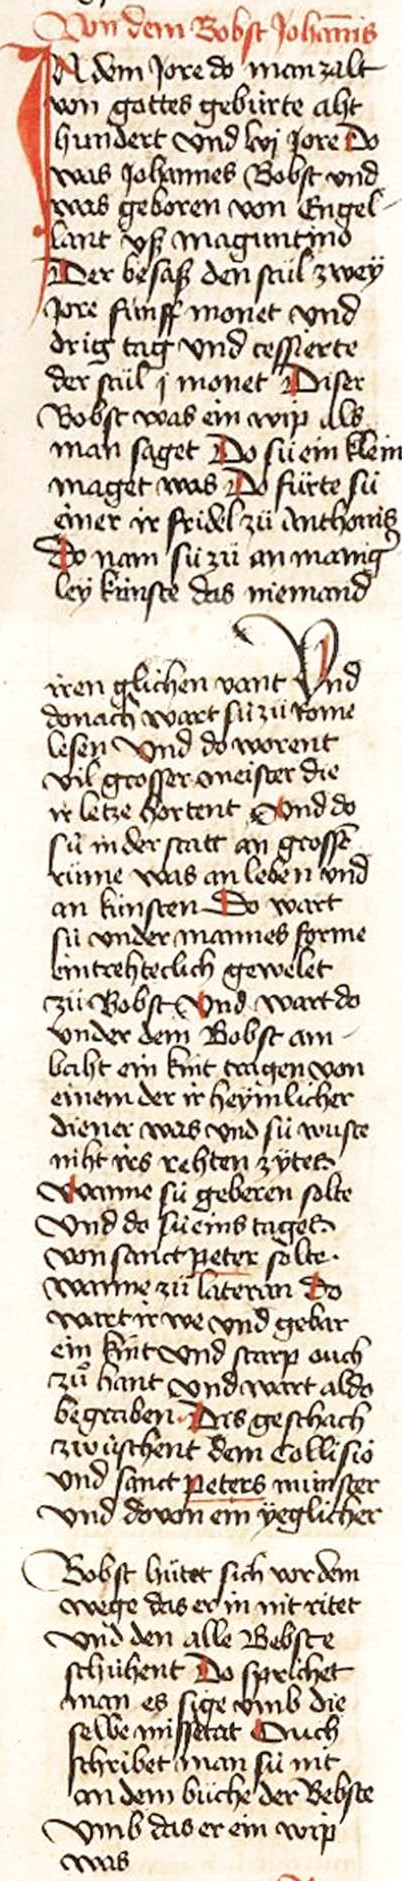 Von dem Bobst Johannis
IN dem Jore do man zalt
von gottes gebürte aht
hundert vnd lvj Jore Do
was Johannes Bobst vnd
was geboren von Engel-
lant vß maguntino
Der besaß den stül zwey
Jore fünff monet vnd
drig tag vnd cessierte
der stül j monet Diser
Bobst was ein wip als
man saget Do sü ein klein
maget was Do fürte sü
einer ir fridel zü Anthonis
Do nam sü zü an manig
ley künste das niemand
iren glichen vant Vnd
donach wart sü zü Rome
lesen Vnd do worent
vil grosser meister die
ir letze hortent Vnd do
sü in der statt an grossē
rüme was an leben vnd
an künsten Do wart
sü vnder mannes forme
eintrehteclich gewelet
zü Bobst Vnd wart do
vnder dem Bobst am-
baht ein kint tragen von
einem der ir heymlicher
diener was vnd sü wuste
niht irs rehten zytes
Wanne sü geberen solte
Vnd do sü eins tages
von sanct peter solte
wanne zü lateran Do
wart ir we vnd gebar
ein kint vnd starp ouch
zü hant vnd wart aldo
begraben Dis geschach
zwüschent dem Collisio
vnd sanct peters münster
vnd dovon ein yeglicher
Bobst hütet sich vor dem
wege das er in nit ritet
vnd den alle Bebste
schühent Do sprichet
man es sige vmb die
selbe missetat Ouch
schribet man sü nit
an dem büche der Bebste
vmb das er ein wip
was